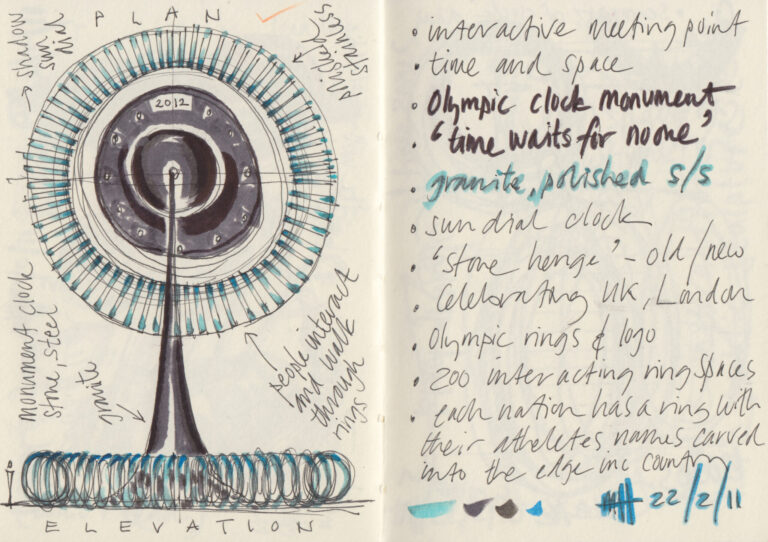 PLAN
→ shadow
sun
dial
polished
stainless
2012
monument clock
stone, steel
granite
people interact
and walk
through
rings
ELEVATION
• interactive meeting point
• time and space
• Olympic clock monument
• 'time waits for no one'
• granite, polished s/s
• sun dial clock
• 'stone henge' - old/new
• Celebrating UK, London
• Olympic rings & logo
• 200 interacting ring spaces
• each nation has a ring with
their atheletes names carved
into the edge inc country
22/2/11